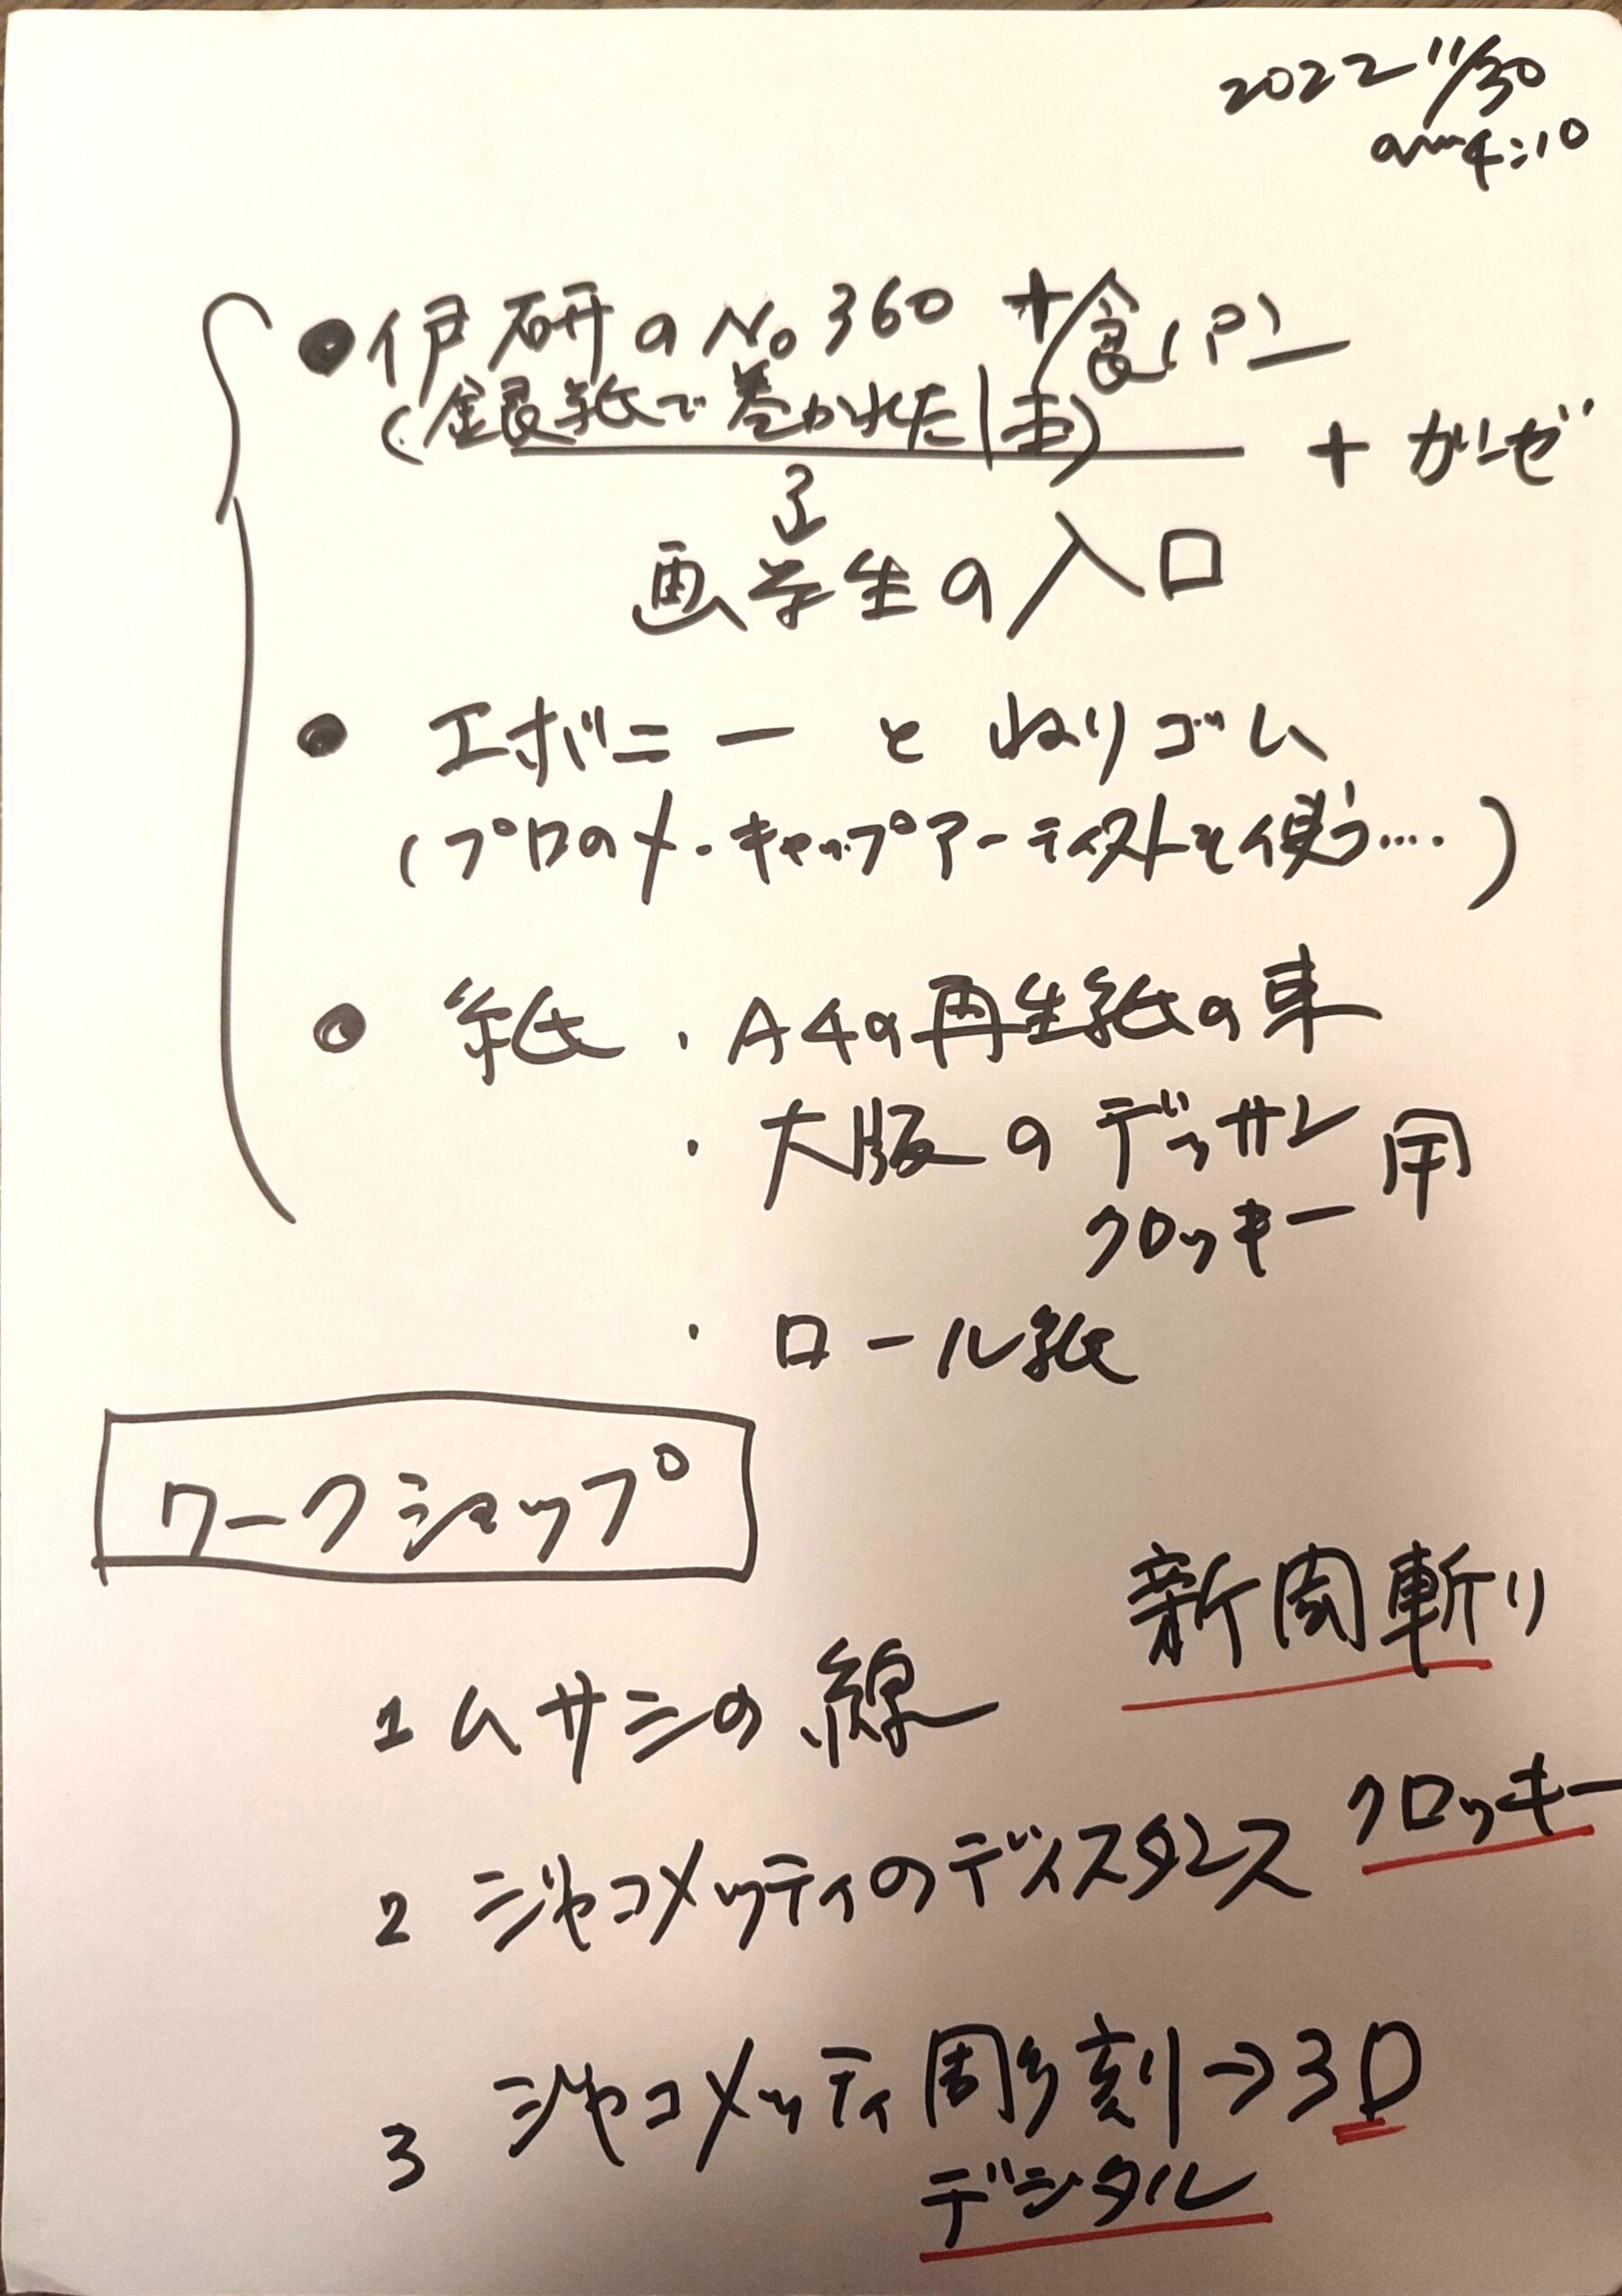 2022 11/30
am4:10
●伊研のNo360 +食(パ)ー
(銀紙で巻かれた木炭)
+ ガーゼ
画学生の入口
● エボニー と ねりゴム
(プロのメーキャップアーティストも使う....)
● 紙 ・A4の再生紙の束
・大版のデッサン用
クロッキー
・ロール紙
ワークショップ
新聞斬り
1 ムサシの線
クロッキー
2 ジャコメッティのディスタンス
3 ジャコメッティ彫刻→3D
デジタル